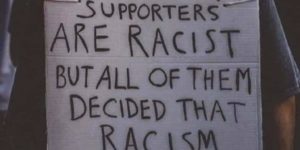 SUPPORTERS
ARE RACIST
BUT ALL OF THEM
DECIDED THAT
RACISM